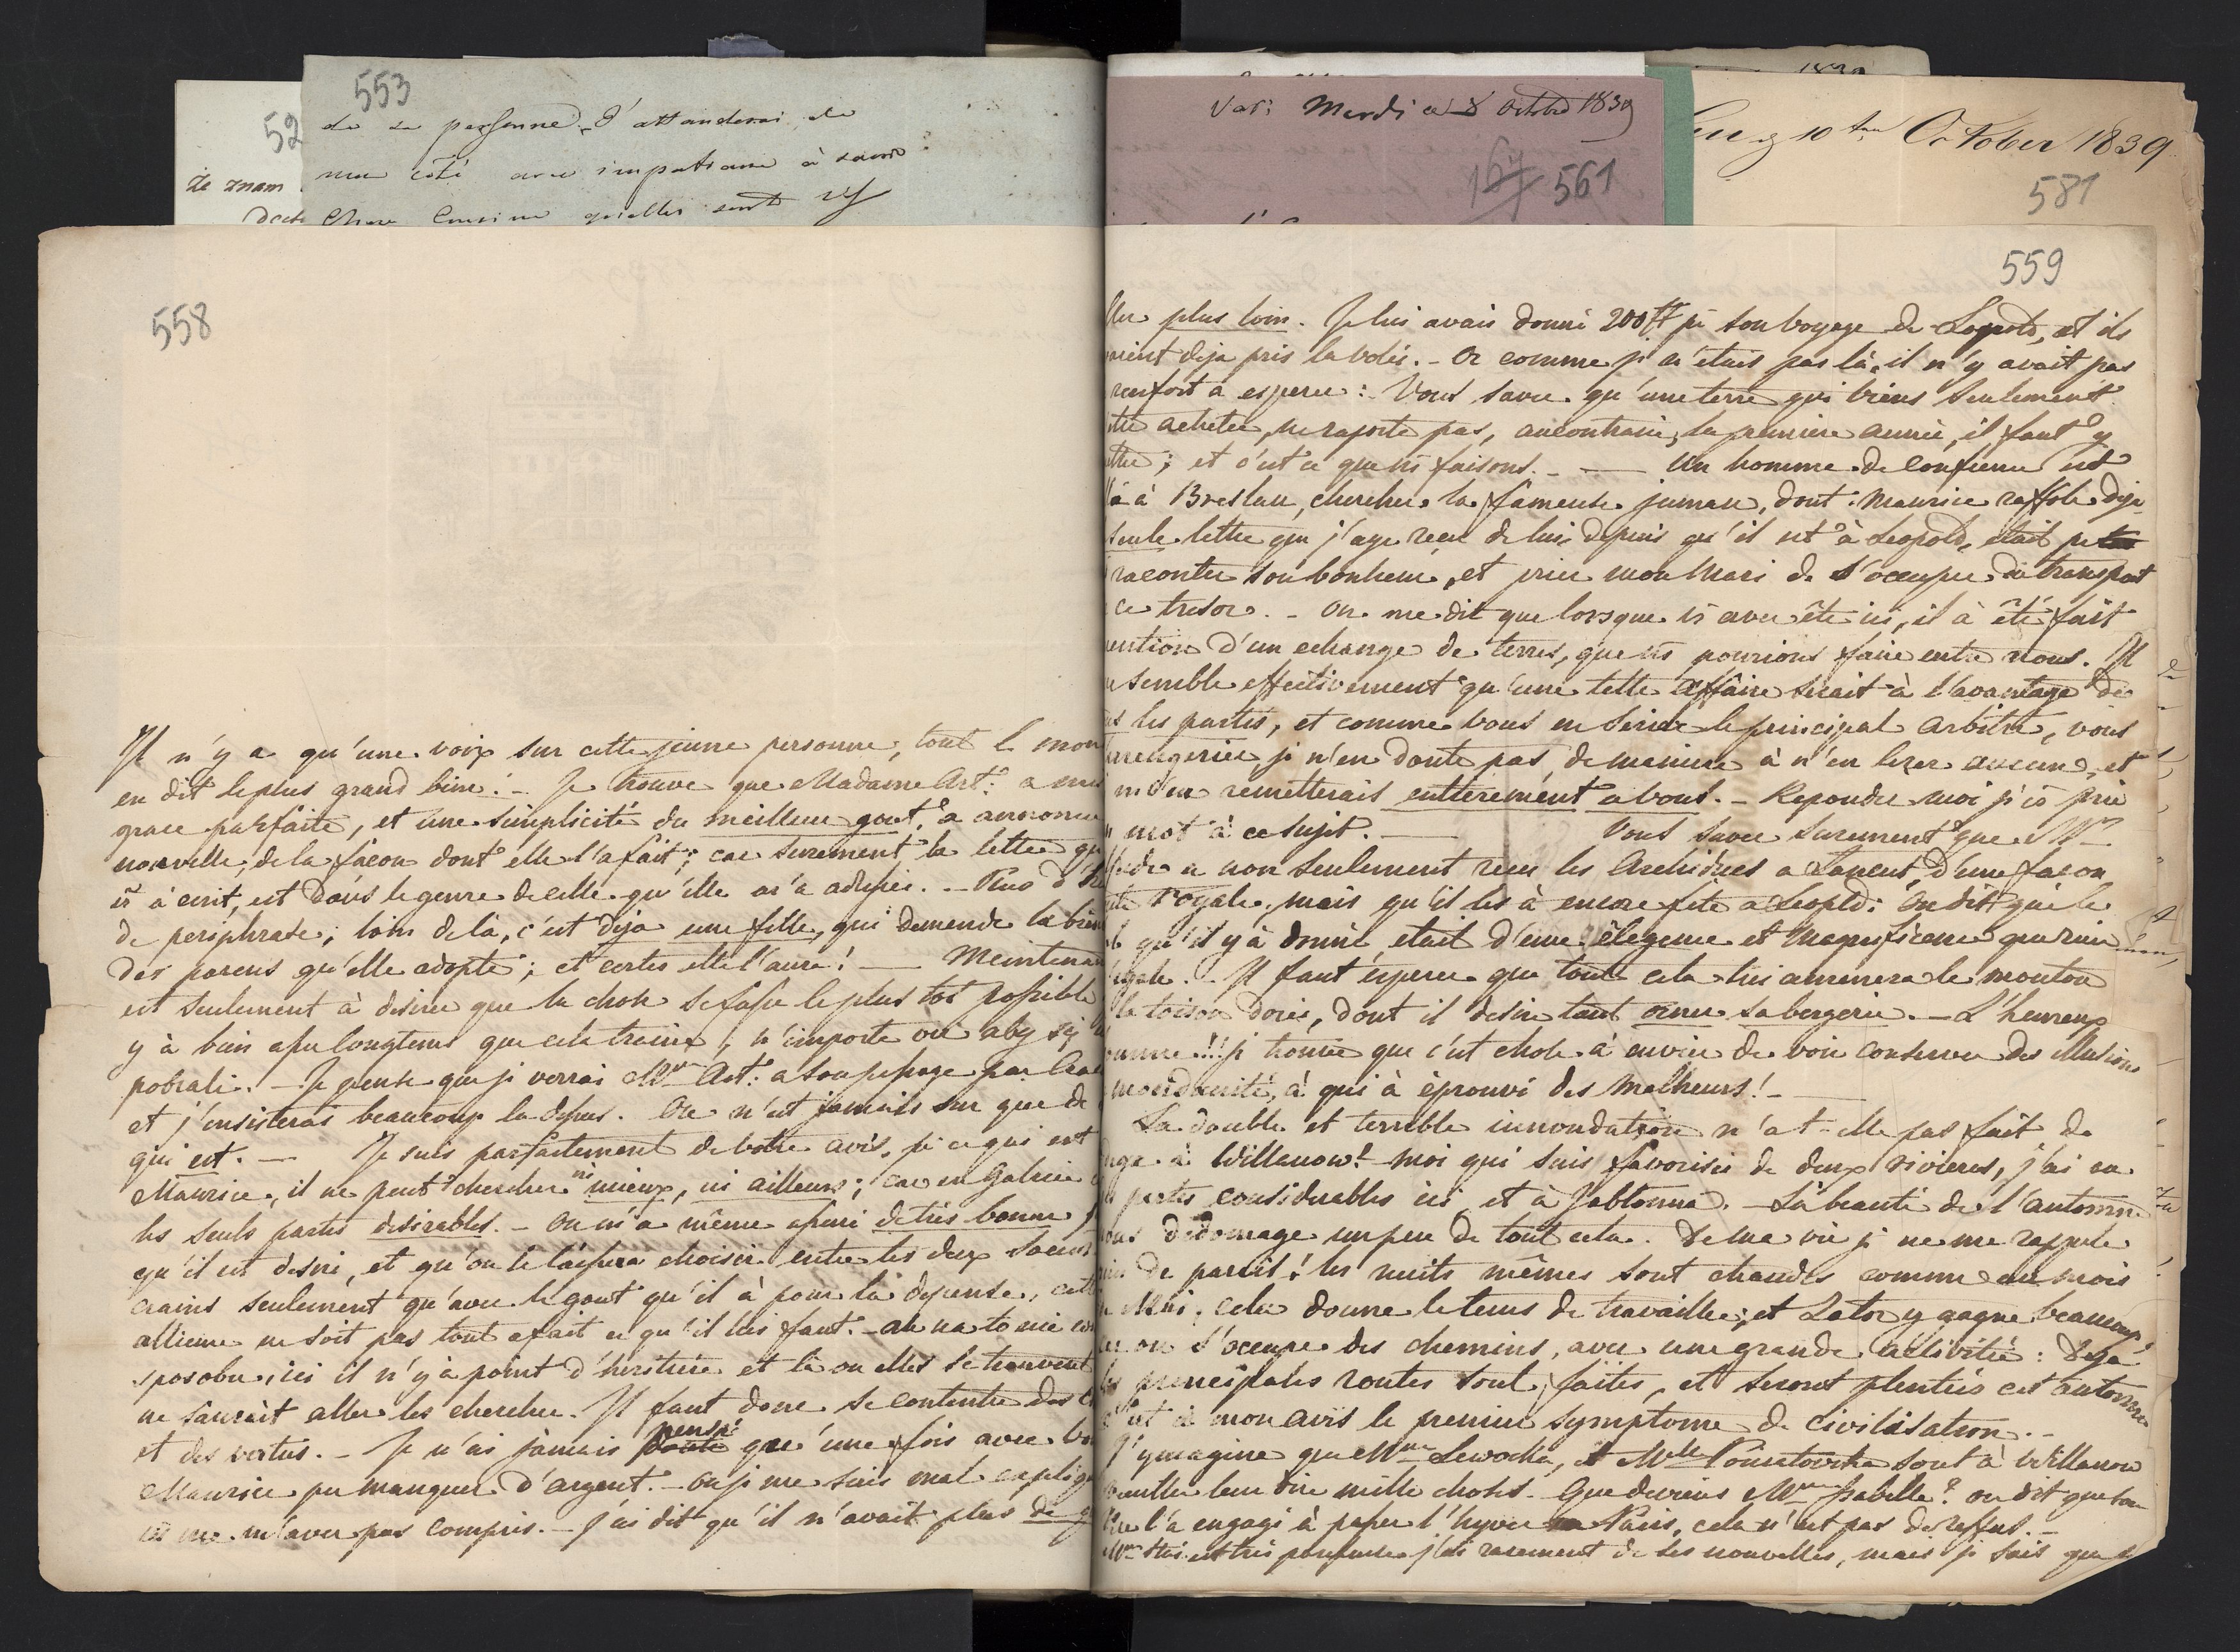 553
52
de sa personne. J'attenderai de
mon côté avec impatiance à savoir
Chere Cousine quelles sont
że znam
558
Il n'y a qu'une voix sur cette jeune personne, tout le mon
en dit le plus grand bien! – Je trouve que Madame Art: a mis
grace parfaite, et une simplicité du meilleur gout, a annoncer
nouvelle, de la façon dont elle l'a fait; car surement la lettre qu
à ecrit, est dans le genre de celle qu'elle m'a adressée. – Peus d'
de periphrase; loin de là, c'est deja une fille, qui demende la bén
des parens qu'elle adopte; et certes elle l'aura! — Meintenan
est seulement à desirer que la chose se fasse le plus tot possible
y à bien assez longtems que cela traine, n'importe où aby się
pobrali. – Je pense que je verrai Mme Art: a son passage par Cra
et j'insisterai beaucoup la dessus. On n'est jamais sur que de
qui est. — Je suis parfaitement de votre avis, pr ce qui est
Maurice, il ne peut chercher ni mieux, ni ailleurs; car en Galicie
les seuls partis desirables. – On m'a même assuré de très bonne
qu'il est desiré, et qu'on le laissera choisir entre les deux soeurs
crains seulement qu'avec le gout qu'il à pour la depense, cette
alliance ne soit pas tout a fait ce qu'il lui faut. – ale na to nie
sposobu, ici il n'y à point d'heritière et là ou elles se trouvent
ne sauroit aller les chercher. Il faut donc se contenter des
et des vertus. – Je n'ai jamais pensé que'une fois avec
Maurice pu manquer d'argent. – ou je me suis mal expliqu
me m'avez pas compris. – J'ai dit qu'il n'avait plus de
Mardi ce 8 Octobre 1839
167 561
10 October 1839
581
559
plus loin. Je lui avais donné 200 pr son voyage de Leopold, et ils
deja pris la volée. – Or comme je n'etais pas là, il n'y avait pas
renfort a esperer: Vous savez qu'une terre qui viens seulement
achetée, ne raporte pas, au contraire, la premiere année, il faut y
et c'est ce que ns faisons. — Un homme de confience est
à Breslau, chercher la fameuse jument, dont Maurice raffole deja
seule lettre que j'aye recu de lui, depuis qu'il est à Leopold, etait pr
raconter son bonheur, et prier mon Mari de s'occuper du transport
ce tresor. – On me dit que lorsque vs avez été ici, il à été fait
mention d'un echange de terres, que ns pourions faire entre nous. Il
semble effectivement qu'une telle affaire serait à l'avantage de
les partis, et comme vous en seriez le principal arbitre, vous
arrengeriez je n'en doute pas, de maniere à n'en lezer aucun, et
m'en remetterais entierement a vous. – Repondez moi je vs prie
mot à ce sujet. — Vous savez surement que Mr
a non seulement recu les Archiducs a Lancut, d'une facon
royale, mais qu'il les à encore feté a Leopold: On dit que le
qu'il y à donné, etait d'une élegence et magnificence que rien
egale. Il faut ésperer que tout cela lui amenera le mouton
la toison dorée, dont il desire tant orner sa bergerie. – L'heureux
homme!!! je trouve que c'est chose à envier de voir conserver des illusions
mondanité, à qui à éprouvé des malheurs! –
La double et terrible innondation n'a t-elle pas fait de
à Willanow? moi qui suis favorisée de deux rivieres, j'ai eu
pertes considerables ici et à Jablonna. – La beauté de l'automne
nous dedomage un peu de tout cela. De ma vie je ne me rappele
rien de pareil! les nuits mêmes sont chaudes comme au mois
Mai, cela donne le tems de travailler, et Zator y gagne beaucoup
on s'occupe des chemins, avec une grande activitée: Deja
les principales routes sont faites, et seront plentées cet automne
c'est à mon avis le premier symptome de civilisation. –
J'ymagine que Mme Lewocka, et Mlle Poniatovska sont à Willanow
veuillez leur dire mille choses. Que deviens Mme Isabelle? on dit que son
l'a engagé à passer l'hyver a Paris, cela n'est pas de reffus. –
est très paresseuse, j'ai rarement de ses nouvelles, mais je sais que